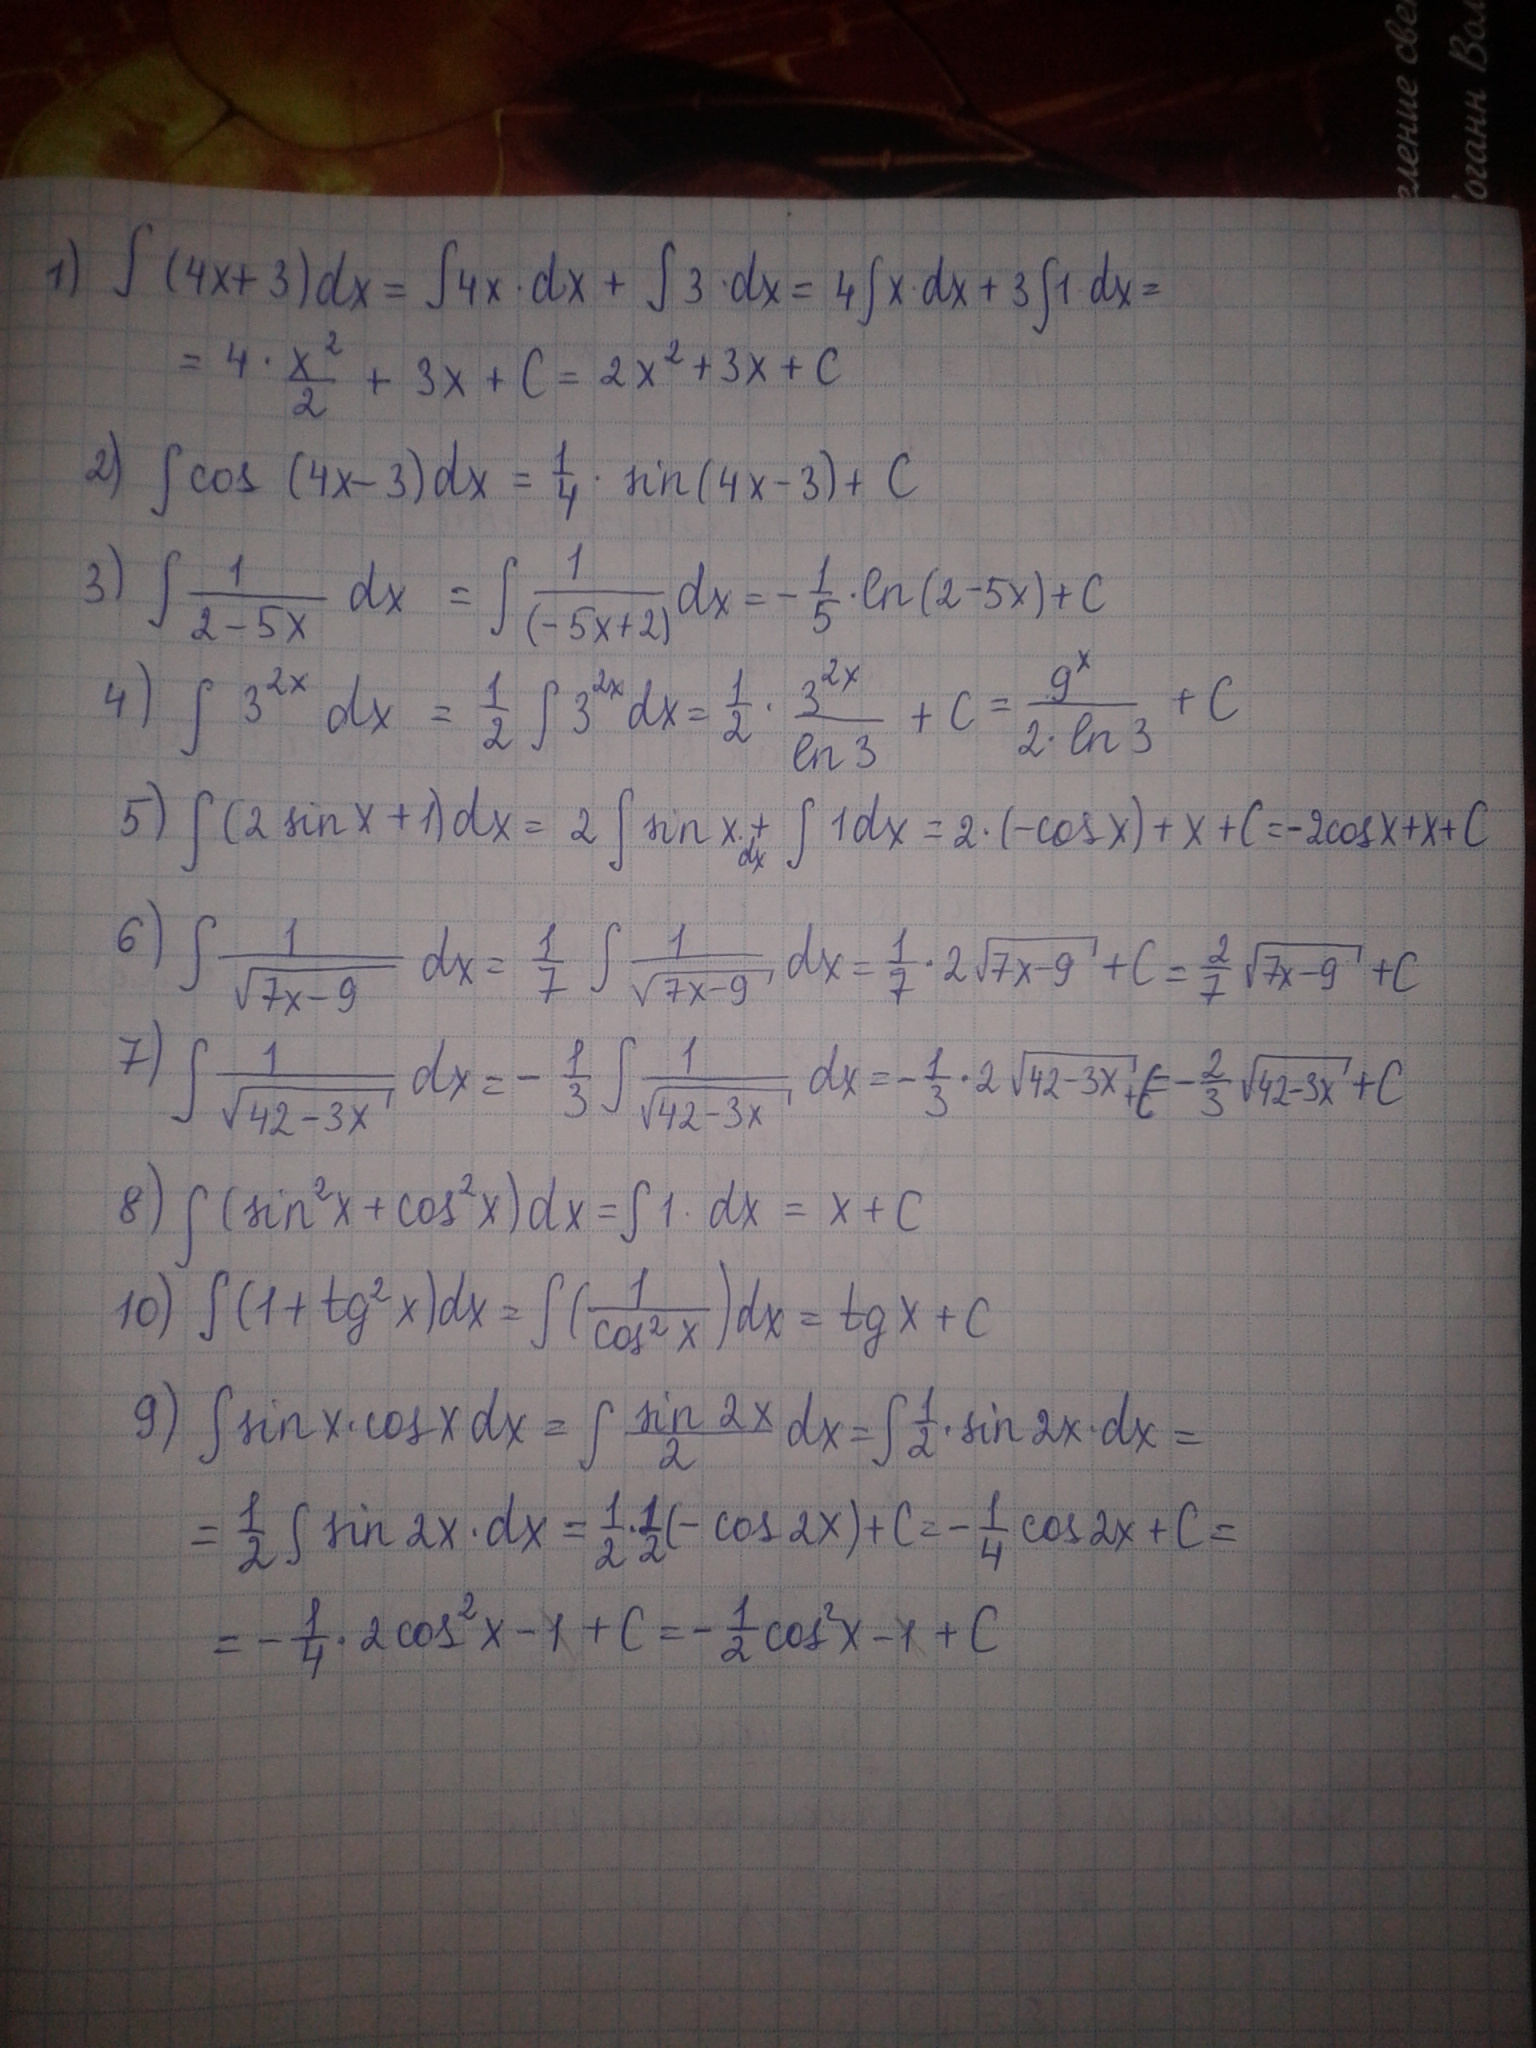 гление свеч
Иоганн Вол
1) ∫ (4x+3)dx = ∫4x·dx + ∫3·dx = 4∫x·dx + 3∫1·dx =
= 4·x²/2 + 3x + C = 2x² + 3x + C
2) ∫cos (4x-3)dx = 1/4 · sin(4x-3) + C
3) ∫ 1/(2-5x) dx = ∫ 1/(-5x+2) dx = -1/5·ln(2-5x) + C
4) ∫ 3^(2x) dx = 1/2 ∫3^(2x) dx = 1/2 · 3^(2x)/ln3 + C = 9^x/(2·ln3) + C
5) ∫(2 sin x + 1)dx = 2 ∫sin x·dx + ∫1dx = 2·(-cos x) + x + C = -2cosx + x + C
6) ∫ 1/√(7x-9) dx = 1/7 ∫ 1/√(7x-9) dx = 1/7 · 2√(7x-9) + C = 2/7 √(7x-9) + C
7) ∫ 1/√(42-3x) dx = -1/3 ∫ 1/√(42-3x) dx = -1/3 · 2√(42-3x) + C = -2/3 √(42-3x) + C
8) ∫(sin²x + cos²x)dx = ∫1·dx = x + C
10) ∫(1 + tg²x)dx = ∫(1/cos²x)dx = tg x + C
9) ∫sin x·cos x dx = ∫ sin 2x/2 dx = ∫1/2·sin 2x·dx =
= 1/2 ∫ sin 2x·dx = 1/2·1/2(-cos 2x) + C = -1/4 cos2x + C =
= -1/4·2cos²x - 1 + C = -1/2 cos²x - 1 + C